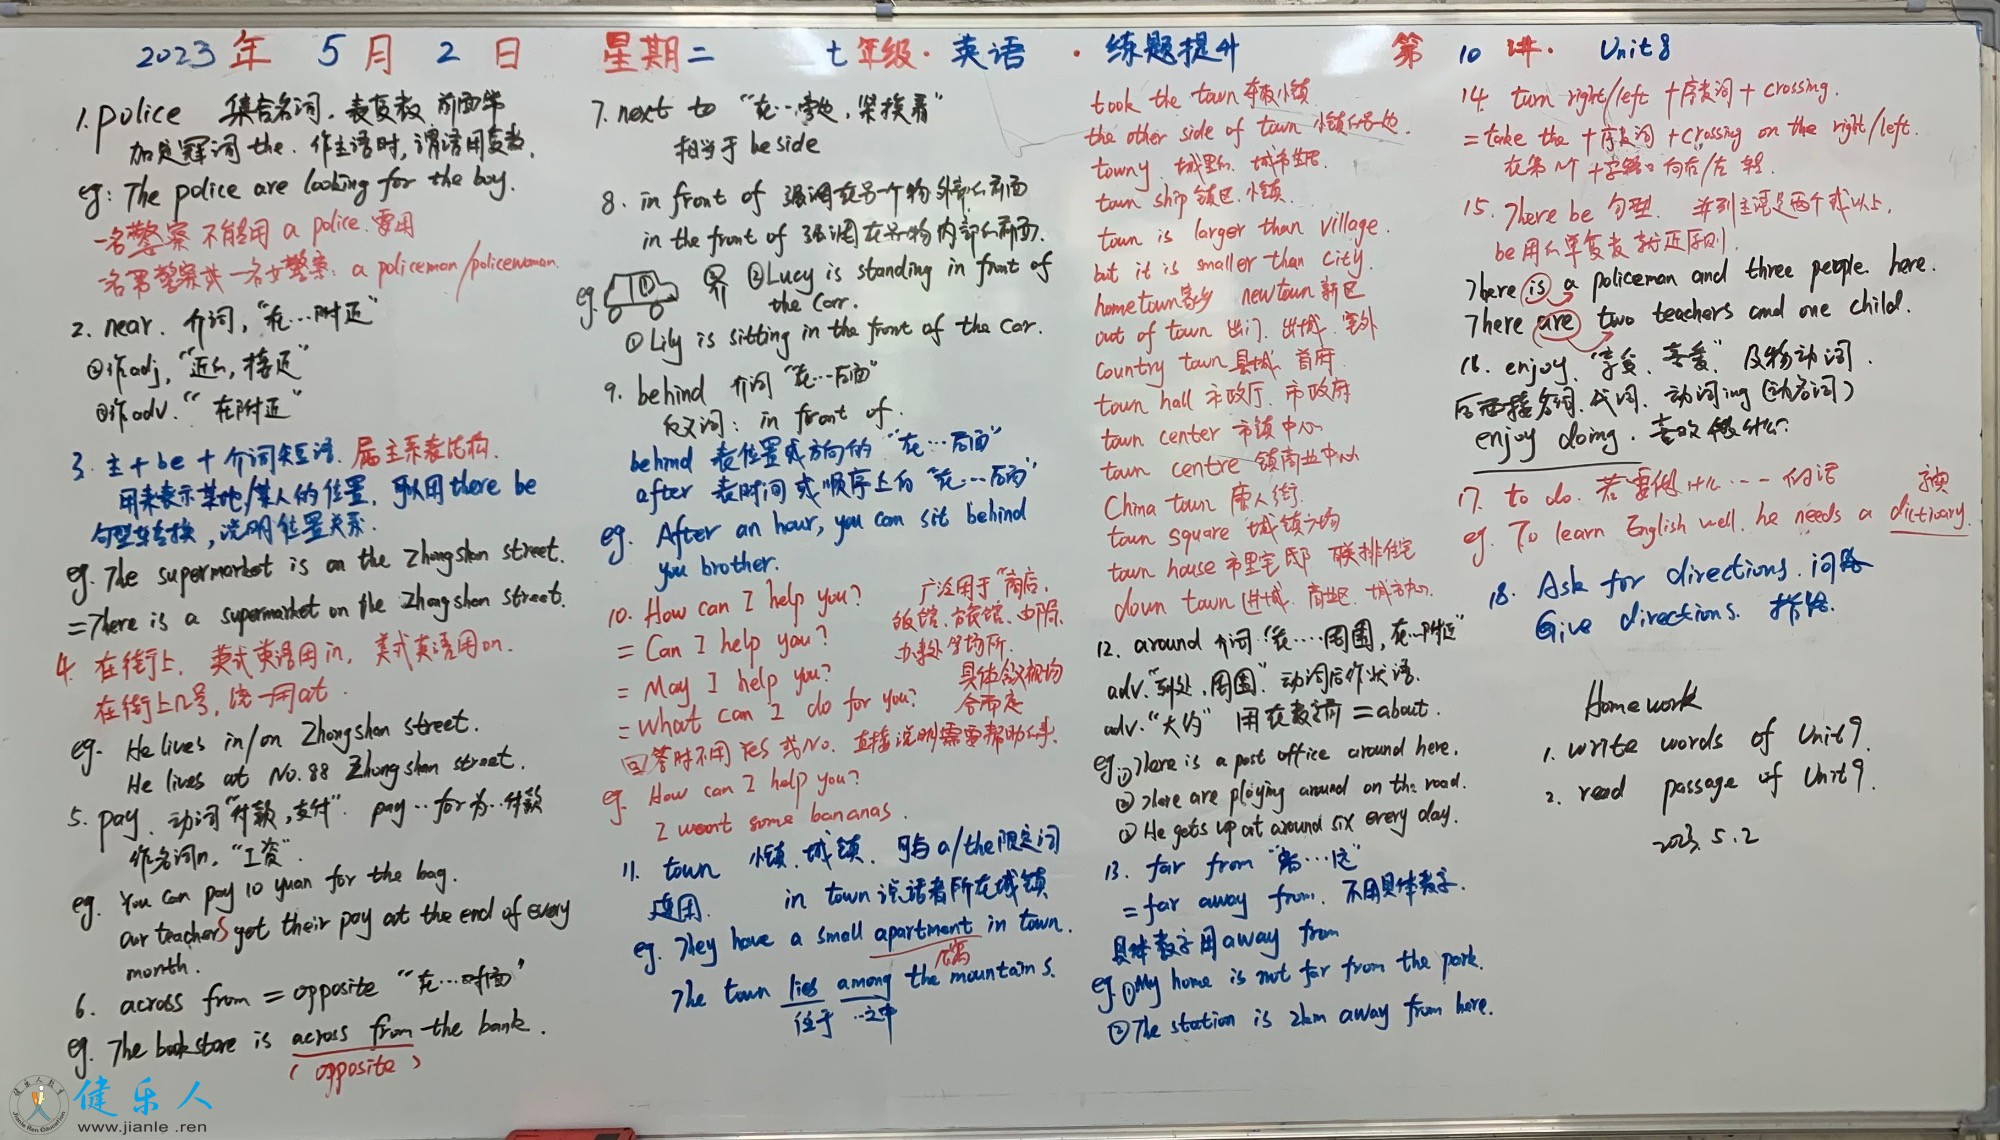 2023年 5月 2日 星期二 七年级·英语·练题提升 第10讲· Unit 8
1. police 集合名词, 表复数, 前面常
加定冠词 the. 作主语时, 谓语用复数.
eg: The police are looking for the boy.
一名警察 不能用 a police. 要用
一名男警察或一名女警察: a policeman/policewoman.
2. near. 介词, "在…附近"
②作adj, "近的, 接近"
③作adv. "在附近"
3. 主+be+介词短语. 属主系表结构.
用来表示某地/某人的位置, 可以用there be
句型转换, 说明位置关系.
eg. The supermarket is on the Zhongshan street.
=There is a supermarket on the Zhongshan street.
4. 在街上, 英式英语用in, 美式英语用on.
在街上几号, 统一用at.
eg. He lives in/on Zhongshan street.
He lives at No.88 Zhongshan street.
5. pay. 动词"付款, 支付". pay…for 为…付款
作名词n, "工资".
eg. You can pay 10 yuan for the bag.
Our teachers get their pay at the end of every
month.
6. across from = opposite "在…对面"
eg. The bookstore is across from the bank.
(opposite)
7. next to "在…旁边, 紧挨着"
相当于 beside
8. in front of 强调在另一个物外部的前面
in the front of 强调在另一物内部的前面.
eg. ① ② ②Lucy is standing in front of
the car.
①Lily is sitting in the front of the car.
9. behind 介词 "在…后面"
反义词: in front of.
behind 表位置或方向的 "在…后面"
after 表时间或顺序上的"在…后面"
eg. After an hour, you can sit behind
you brother.
10. How can I help you? 广泛用于"商店,
= Can I help you? 饭馆、旅馆、邮局、
= May I help you? 办事处等场所.
= What can I do for you? 具体含义视场合而定
回答时不用 Yes 或 No. 直接说明需要帮助的事.
eg. How can I help you?
I want some bananas.
11. town 小镇、城镇, 可与a/the限定词
连用. in town 说话者所在城镇
eg. They have a small apartment in town.
公寓
The town lies among the mountains.
位于 …之中
took the town 夺取小镇
the other side of town 小镇的另一边.
towny 城里的, 城市居民.
town ship 镇区. 小镇.
town is larger than village.
but it is smaller than city.
hometown家乡 newtown 新区
out of town 出门. 出城. 室外
country town 县城 首府
town hall 市政厅. 市政府
town center 市镇中心
town centre 镇商业中心
China town 唐人街.
town square 城镇广场
town house 市里宅邸 联排住宅
down town 进城. 商业区. 城市中心.
12. around 介词 "在……周围, 在…附近"
adv."到处, 周围". 动词后作状语.
adv."大约" 用在数字前 = about.
eg. ①There is a post office around here.
②There are playing around on the road.
③He gets up at around six every day.
13. far from "离…远"
= far away from. 不用具体数字.
具体数字用away from
eg. ①My home is not far from the park.
②The station is 2km away from here.
14. turn right/left +序数词+ crossing.
= take the +序数词+crossing on the right/left.
在第几个十字路口向右/左转.
15. There be 句型. 并列主语是两个或以上,
be用的单复数就近原则.
There is a policeman and three people here.
There are two teachers and one child.
16. enjoy. "享受, 喜爱" 及物动词.
后面接名词、代词、动词ing(动名词)
enjoy doing. 喜欢做什么.
17. to do. 若要做什么…的话
eg. To learn English well, he needs a dictionary.
字典
18. Ask for directions. 问路
Give directions. 指路.
Homework
1. write words of Unit 9.
2. read passage of Unit 9.
2023.5.2
健乐人
www.jianle.ren